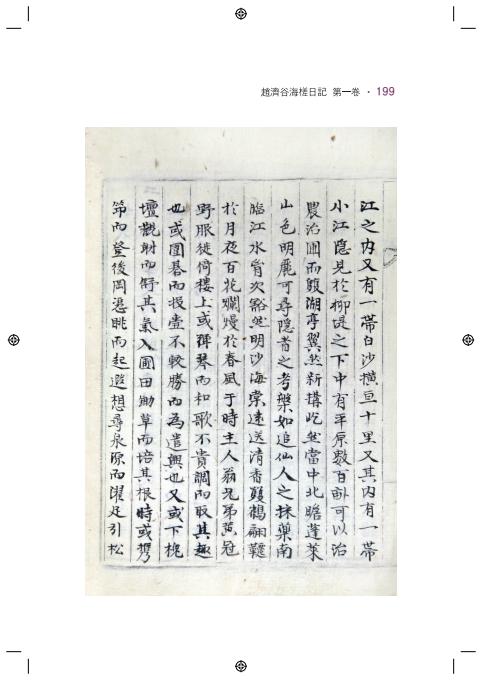 趙濟谷海槎日記 第一卷 · 199
江之內又有一帶白沙橫亘十里又其內有一帶
小江隱見於柳堤之下中有平原數百畝可以治
農治圃而皷湖亭翼然新搆屹然當中北瞻蓬萊
山色明麗可尋隱者之考槃如追仙人之採藥南
臨江水胷次豁然明沙海棠遠送清香雙鶴翩躚
於月夜百花爛熳於春風于時主人翁兄弟黃冠
野服徙倚樓上或彈琴而和歌不貴調而取其趣
也或圍碁而投壺不較勝而為遣興也又或下槐
壇觀射而倚其氣入圃田鋤草而培其根時或携
筇而登後岡憑眺而起遐想尋泉源而濯足引松